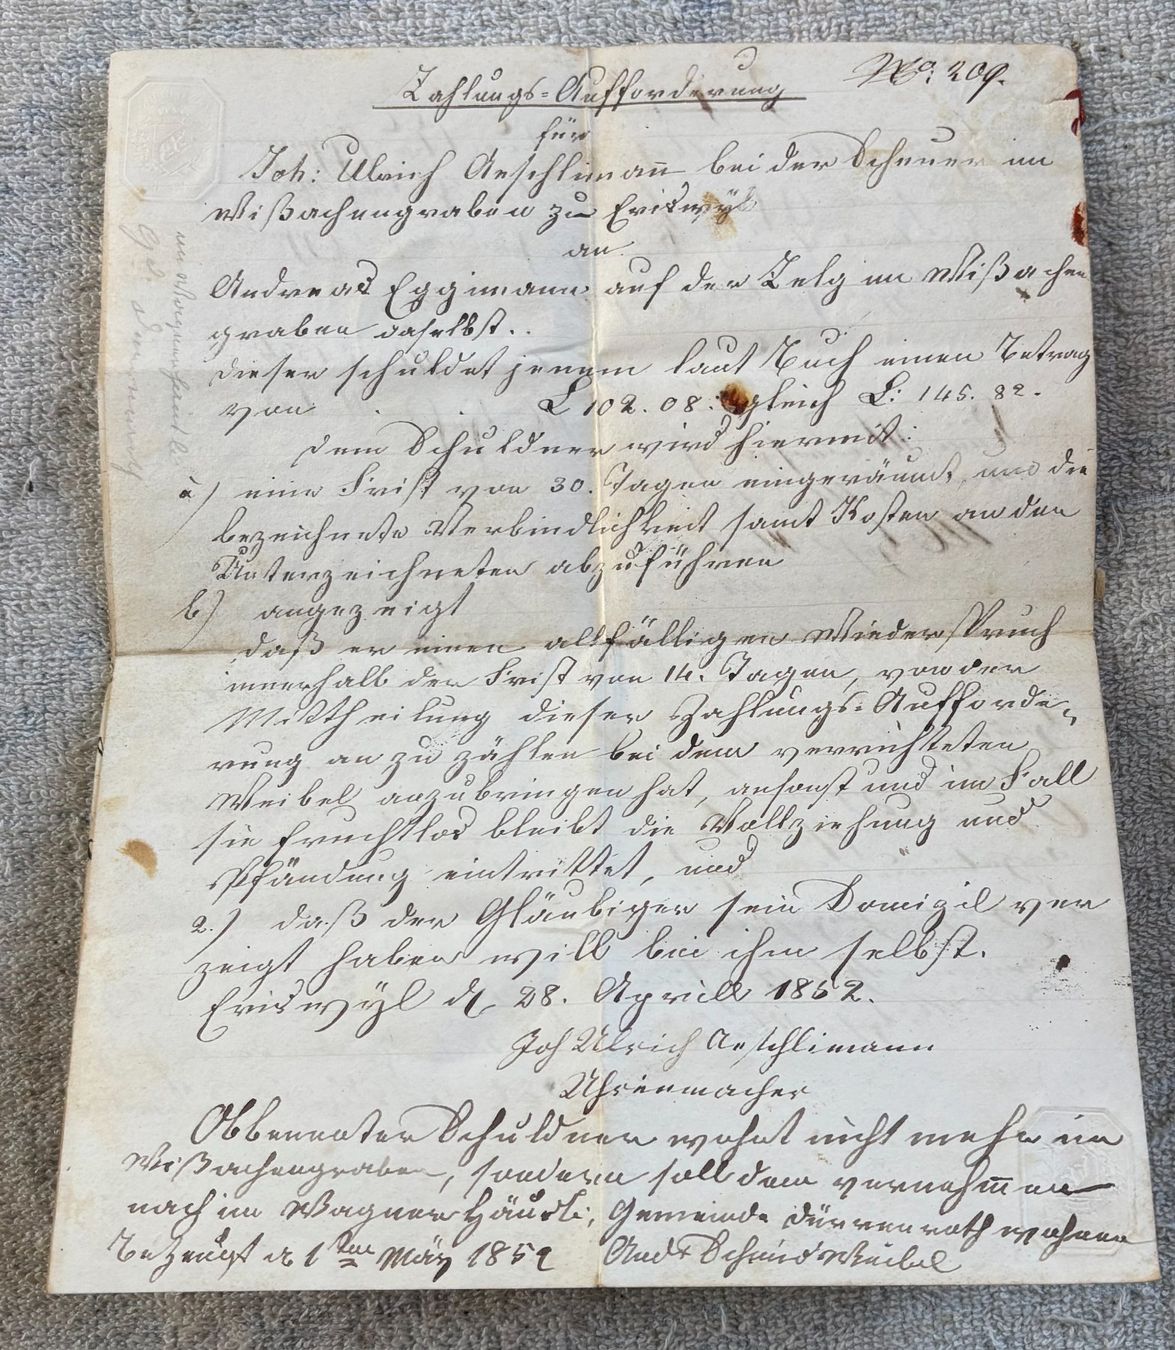 No: 209.
Zahlungs-Aufforderung
für
Joh: Ulrich Aeschlimañ bei der Scheuer im
Wißachengraben zu Eriswyl
an
Andreas Eggimann auf der Zelg im Wißachen
graben daselbst.
Dieser schuldet jenem laut Buch einen Betrag
von . . £ 102. 08. gleich £: 145. 82.
Dem Schuldner wird hiermit:
a) eine Frist von 30. Tagen eingeräumt, um die
bezeichnete Verbindlichkeit samt Kosten an den
Unterzeichneten abzuführen
b) angezeigt
daß er einen allfälligen Wiederspruch
innerhalb der Frist von 14. Tagen, von der
Mittheilung dieser Zahlungs-Aufforde-
rung an zu zählen bei dem verrichteten
Weibel anzubringen hat, ansonst und im Fall
sie fruchtlos bleibt die Vollziehung und
Pfändung eintrittet, und
2.) daß der Gläubiger sein Domizil ver
zeigt haben will bei ihm selbst.
Eriswyl d. 28. Aprill 1852.
Joh Ulrich Aeschlimann
Uhrenmacher
Obbenenter Schuldner wohnt nicht mehr im
Wißachengraben, sondern soll dem vernehm̄en
nach im Wagner Häusli, Gemeinde Dürrenroth wohnen
Bezeugt d 1ten May 1852 And. Schmid Weibel
im Wagnerhäusli